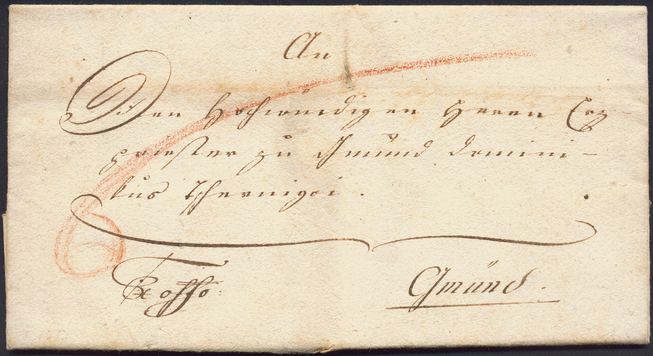 An
Den Hochwürdigen Herrn Erz
priester zu Gmünd Domini-
kus Tschernigoi.
Ex offo:
Gmünd.